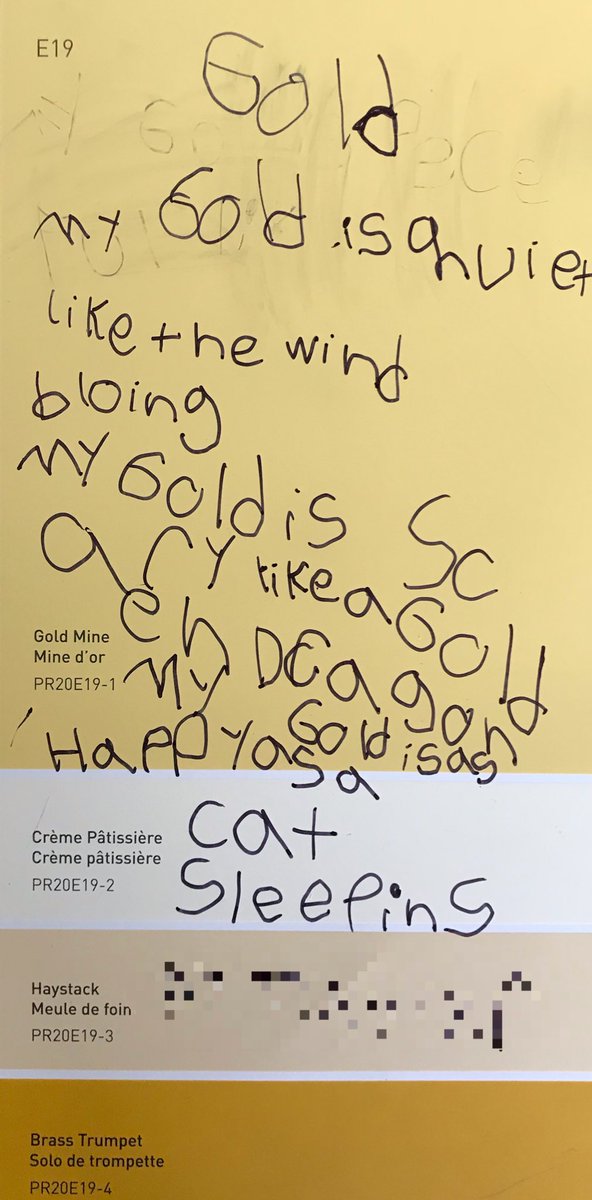 E19
Gold
my Gold is quiet
like the wind
bloing
my Gold is Sc
ary like a Gold
en Dragon
my Gold is as
Happy as a
cat
Sleeping
Gold Mine
Mine d'or
PR20E19-1
Crème Pâtissière
Crème pâtissière
PR20E19-2
Haystack
Meule de foin
PR20E19-3
Brass Trumpet
Solo de trompette
PR20E19-4